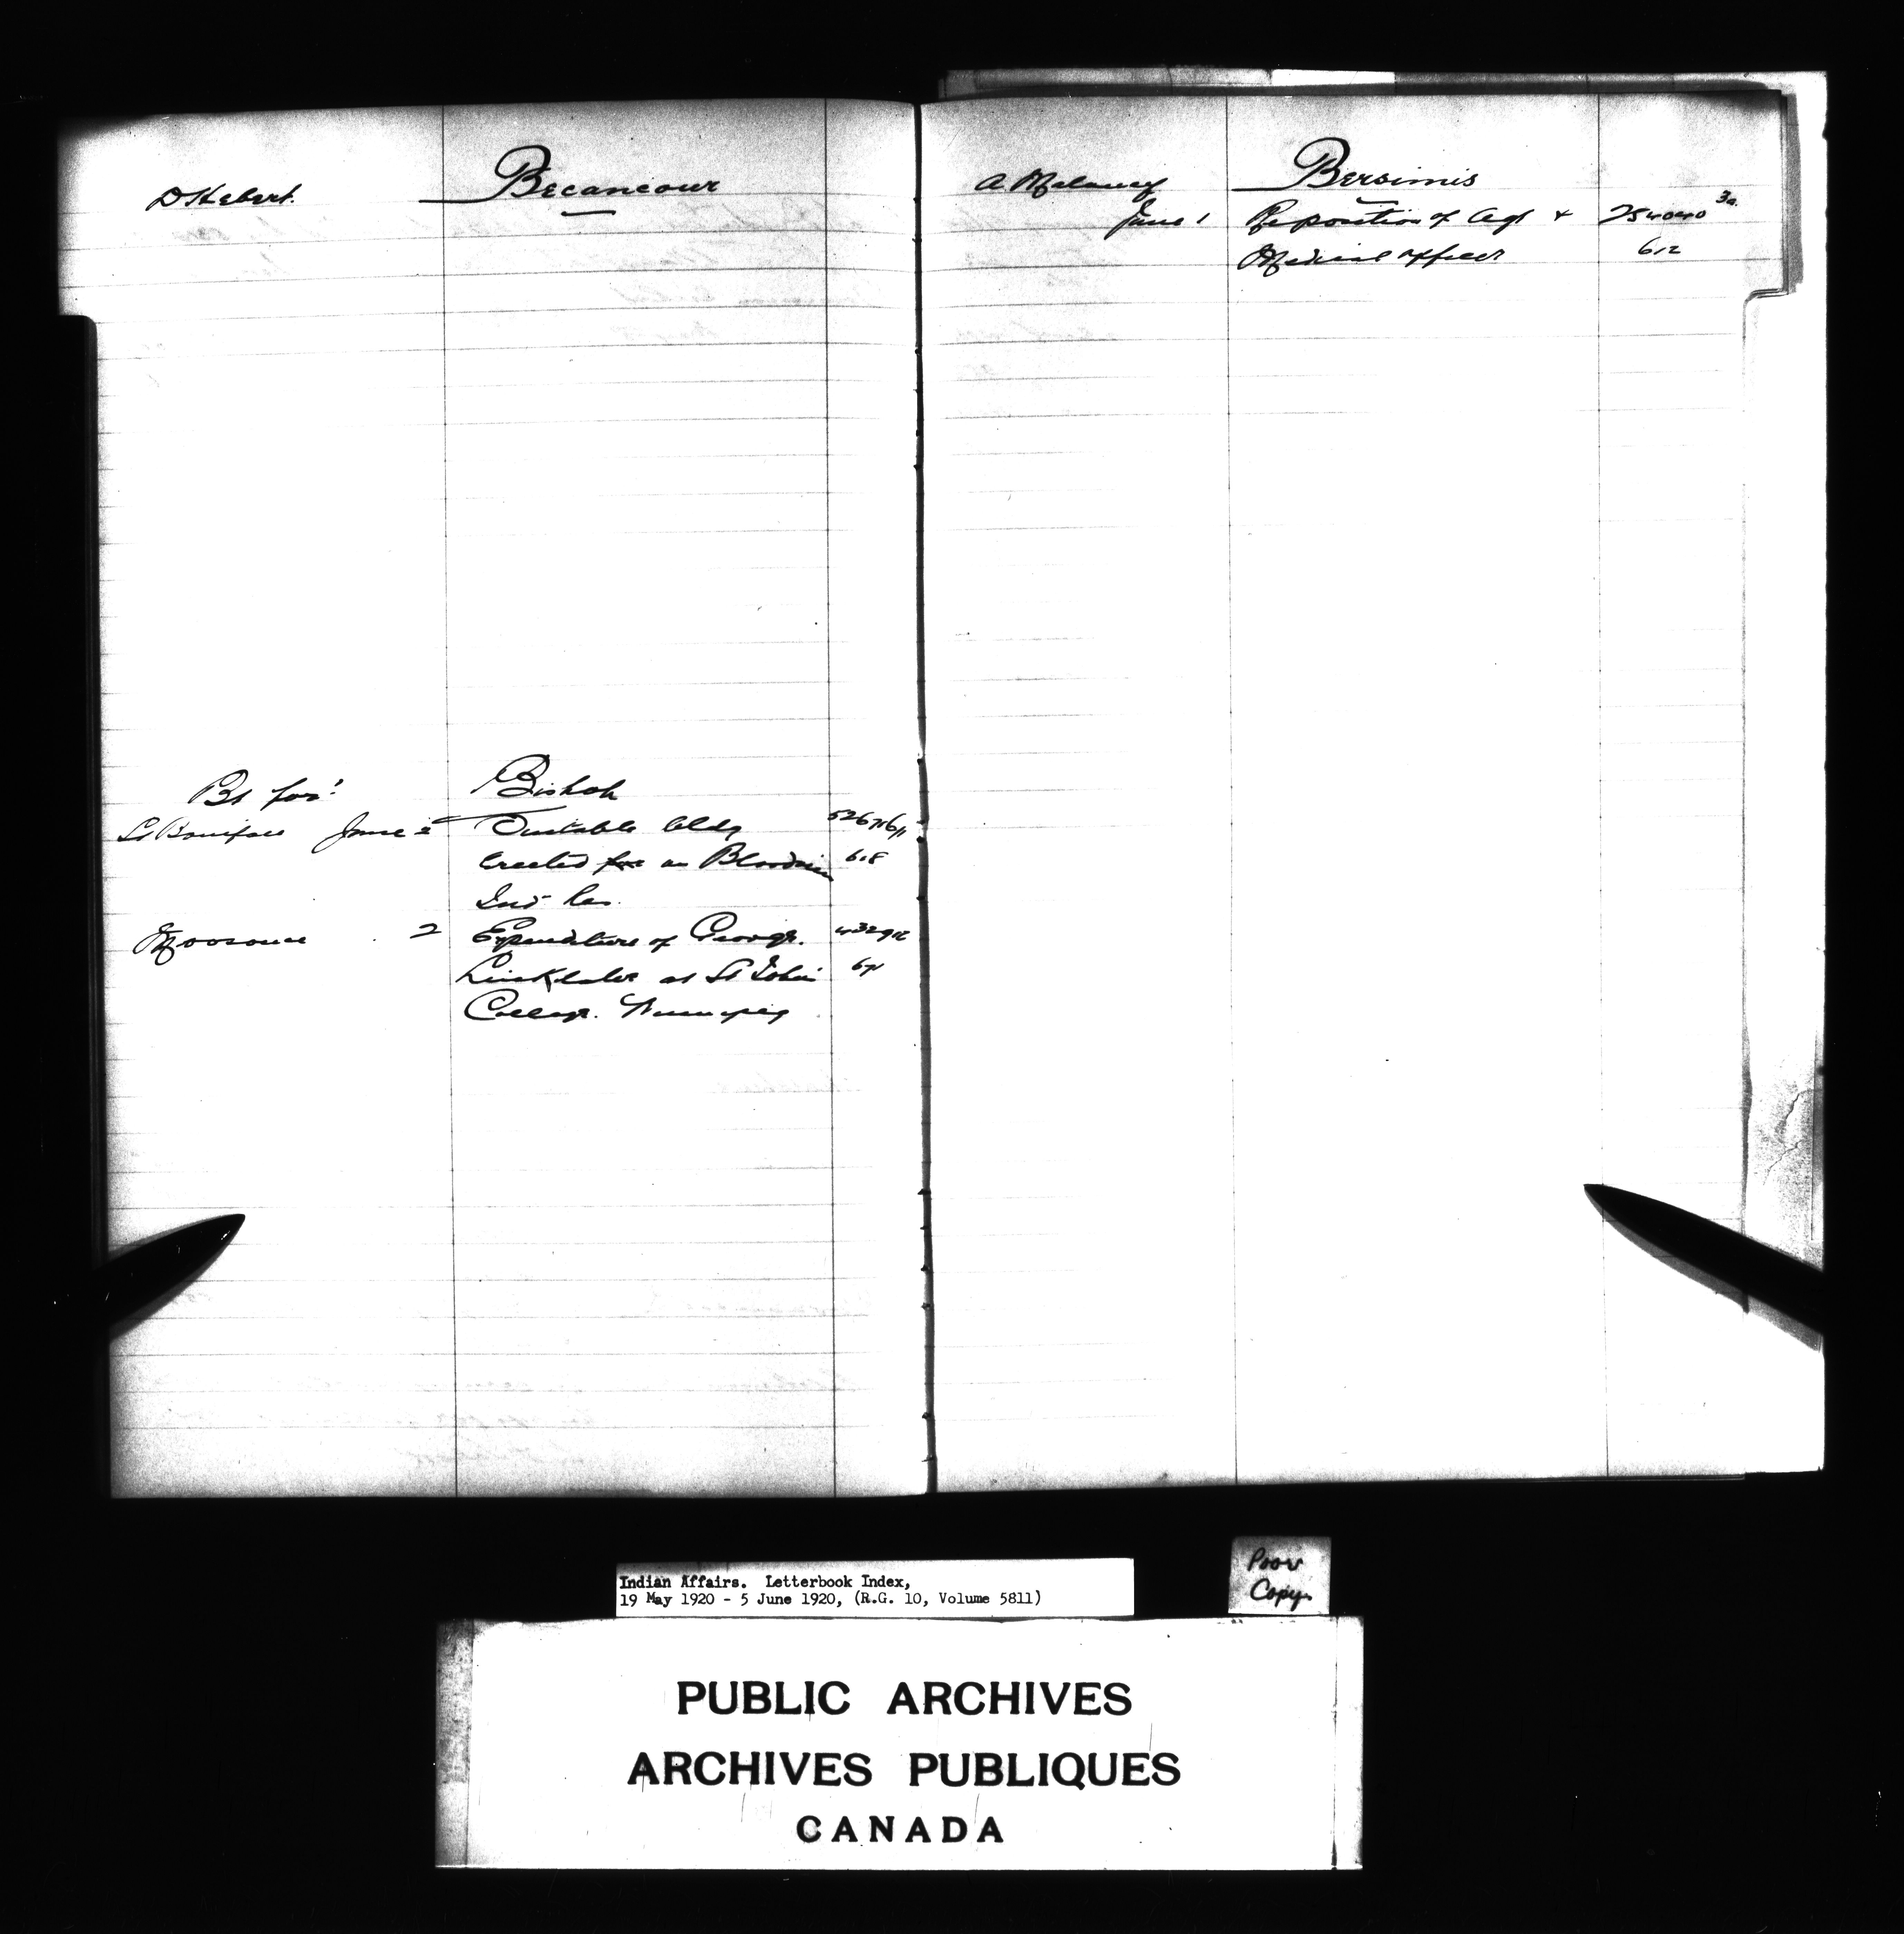 D Hebert. Becancour
Bt for' Bishop
St Boniface June 2 Suitable bldg 526716/1
erected for on Blood 618
Ind Res.
Moosonee . 2 Expenditure of George. 432912
Linklater at St John 671
College. Winnipeg
A Malouey Bersimis
June 1 Reposition of Agt + 254040 3a.
Medical Officer 612
Indian Affairs. Letterbook Index,
19 May 1920 - 5 June 1920, (R.G. 10, Volume 5811)
Poor
Copy.
PUBLIC ARCHIVES
ARCHIVES PUBLIQUES
CANADA